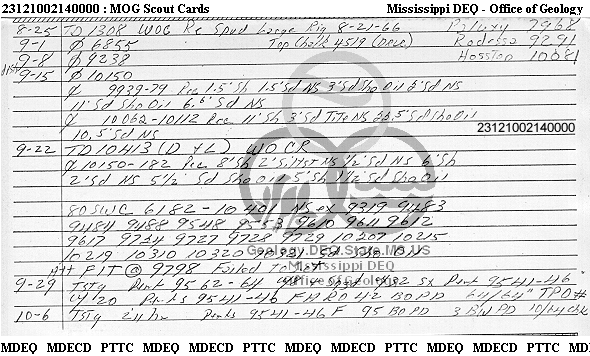 23121002140000 : MOG Scout Cards Mississippi DEQ - Office of Geology
8-25 TD 1308 WOC Re Spud Large Rig 8-21-66 Paluxy 7968
9-1 Ø 6855 Top Chalk 4519 Rodessa 9291
9-8 Ø 9238 Hosston 10081
9-15 Ø 10150
Ø 9939-79 Rec 1.5' Sh 1.5' Sd NS 3' Sd Sho Oil Sd NS
11' Sd Sho Oil 6.5' Sd NS
Ø 10062-10112 Rec 11' Sh 3' Sd Tite NS 5' Sd Sho Oil
23121002140000
10.5' Sd NS
9-22 TD 10413 (D & L) WO CR
Ø 10150-182 Rec 8' Sh 2' NS 1/2' Sd NS 6' Sh
2' Sd NS 5 1/2' Sd Sho Oil 5' Sh 1 1/2' Sd Sho Oil
80 SWC 6182-10401 NS ex 9319 9483
9484 9488 9548 9553 9610 9611 9612
9617 9724 9727 9728 9729 10207 10215
10219 10310 10320
Geology.DEQ.State.MS.US
Mississippi DEQ
Office of Geology
Att FIT @ 9798 Failed To
9-29 Tstg Perf 9562-64 sx Perf 9541-46
Perfs 9541-46 F 42 BOPD 64/64" TPO#
10-6 Tstg Perfs 9541-46 F 95 BOPD 3 BWPD 10/64 chk
MDEQ MDECD PTTC MDEQ MDECD PTTC MDEQ MDECD PTTC MDEQ MDECD PTTC MDEQ MDEC